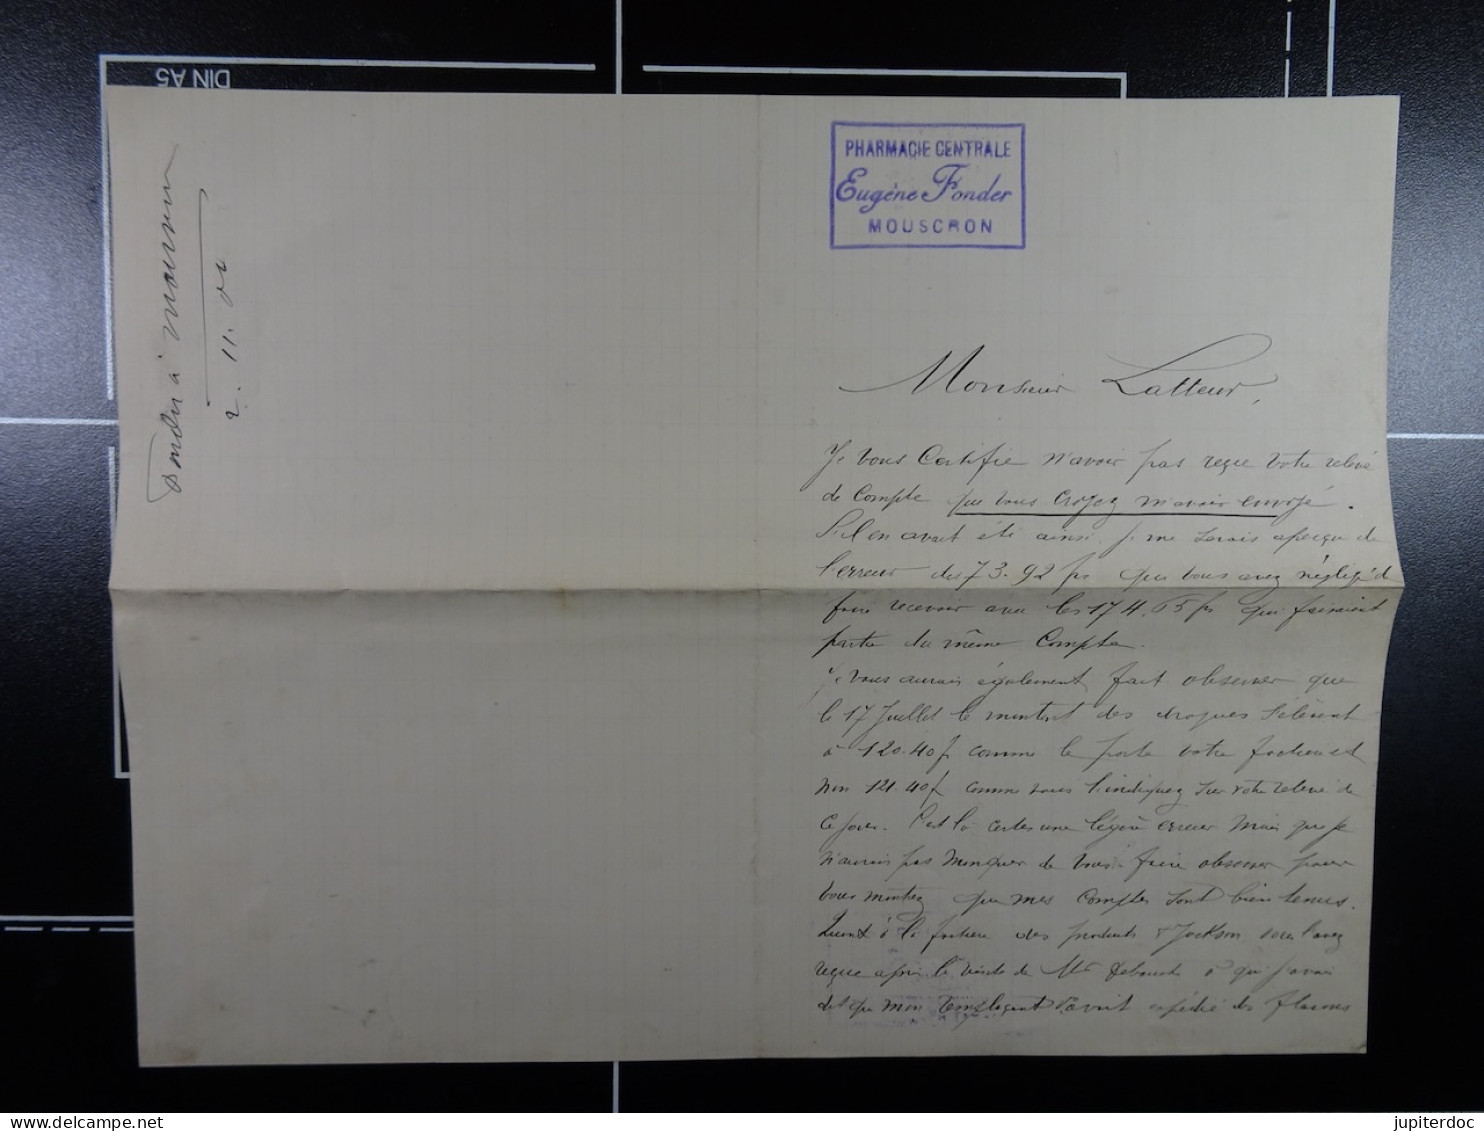 DIN A5
Fonder à Mouscron
2.11.02
PHARMACIE CENTRALE
Eugène Fonder
MOUSCRON
Monsieur Latteur,
Je vous Certifie n'avoir pas reçu votre relevé
de Compte que vous croyez m'avoir envoyé.
S'il en avait été ainsi je me serais aperçu de
l'erreur des 73.92 fr que vous avez négligé d
faire recevoir avec les 174.65 fr qui faisaient
partie du même Compte.
Je vous aurais également fait observer que
le 17 Juillet le montant des drogues s'élèvent
à 120.40 f comme le porte votre facture et
non 121.40 f comme vous l'indiquez sur votre relevé de
ce jour. C'est là certes une légère erreur mais que je
n'aurais pas manquer de vous faire observer pour
vous montrer que mes comptes sont bien tenus.
Quant à la facture des produits Jackson vous l'avez
reçue après la visite de Mr à qui j'avais
dit que mon employant avait expédié des flacons
delcampe.net
jupiterdoc